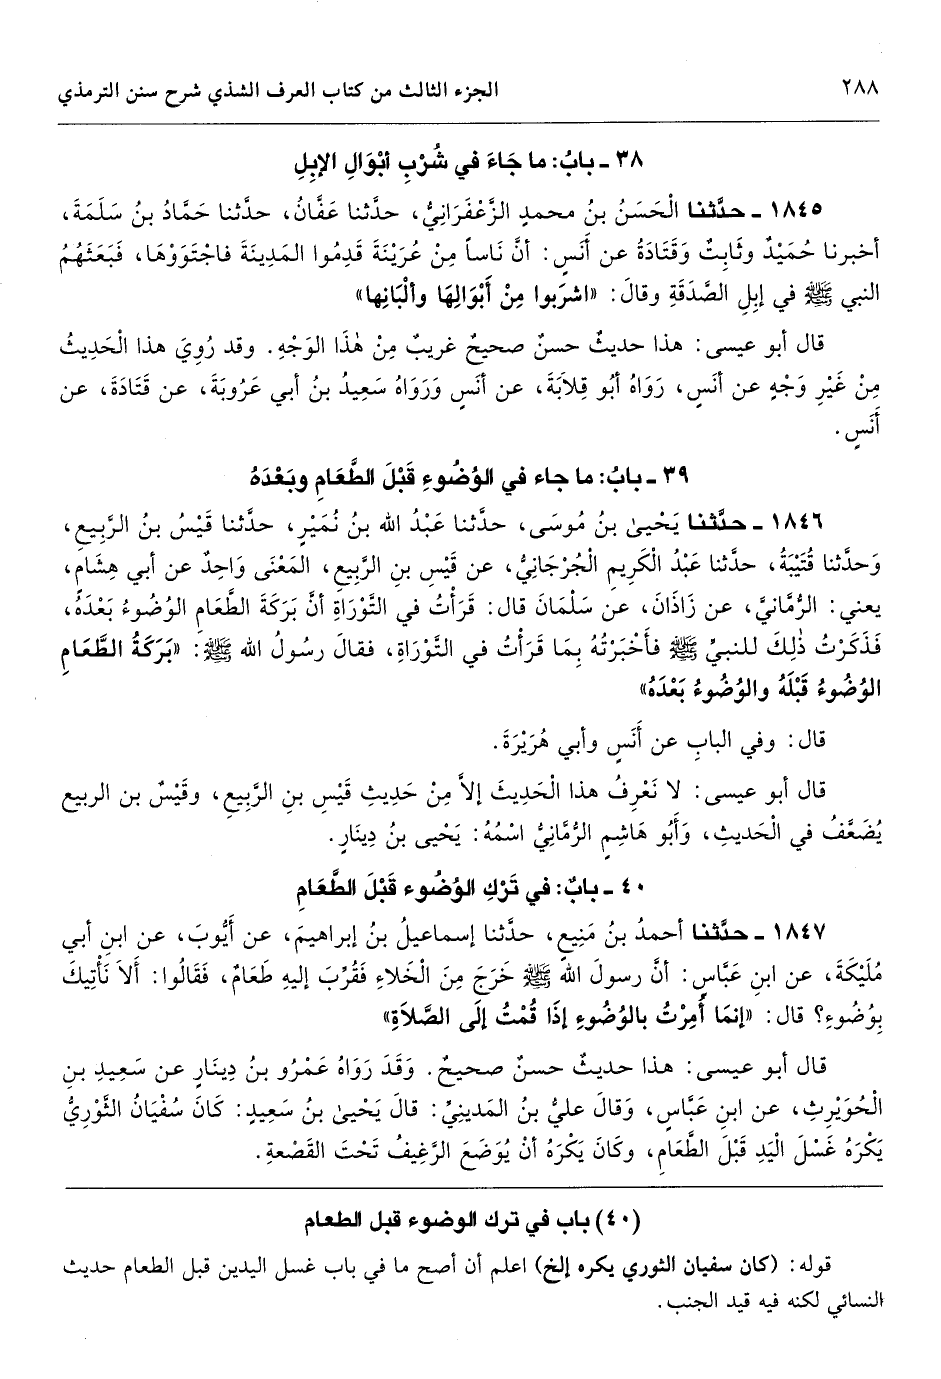 ٢٨٨ الجزء الثالث من كتاب العرف الشذي شرح سنن الترمذي
٣٨ ـ بابُ: ما جَاءَ في شُرْبِ أَبْوَالِ الإبِلِ
١٨٤٥ ـ حدَّثنا الْحَسَنُ بنُ محمدٍ الزَّعْفَرَانِيُّ، حدَّثنا عَفَّانُ، حدَّثنا حَمَّادُ بنُ سَلَمَةَ،
أخبرنا حُمَيْدٌ وثَابِتٌ وَقَتَادَةُ عن أَنَسٍ: أنَّ نَاساً مِنْ عُرَيْنَةَ قَدِمُوا المَدِينَةَ فاجْتَوَوْهَا، فَبَعَثَهُمُ
النبي ﷺ في إبِلِ الصَّدَقَةِ وقالَ: «اشرَبوا مِنْ أَبْوَالِهَا وألْبَانِها»
قال أبو عيسى: هذا حديثٌ حسنٌ صحيحٌ غريبٌ مِنْ هٰذَا الوَجْهِ. وقد رُوِيَ هذا الْحَدِيثُ
مِنْ غَيْرِ وَجْهٍ عن أنَسٍ، رَوَاهُ أبُو قِلَابَةَ، عن أنَسٍ وَرَوَاهُ سَعِيدُ بنُ أبي عَرُوبَةَ، عن قَتَادَةَ، عن
أَنَسٍ.
٣٩ ـ بابُ: ما جاء في الوُضُوءِ قَبْلَ الطَّعَامِ وبَعْدَهُ
١٨٤٦ ـ حدَّثنا يَحْيىٰ بنُ مُوسَى، حدَّثنا عَبْدُ الله بنُ نُمَيْرٍ، حدَّثنا قَيْسُ بنُ الرَّبيعِ،
وَحدَّثنا قُتَيْبَةُ، حدَّثنا عَبْدُ الْكَرِيمِ الْجُرْجَانِيُّ، عن قَيْسِ بنِ الرَّبِيعِ، المَعْنَى وَاحِدٌ عن أبي هِشَامٍ،
يعني: الرُّمَّانيَّ، عن زَاذَانَ، عن سَلْمَانَ قال: قَرَأْتُ في التَّوْرَاةِ أنَّ بَرَكَةَ الطَّعَامِ الوُضُوءُ بَعْدَهُ،
فَذَكَرْتُ ذٰلِكَ للنبيِّ ﷺ فأَخْبَرْتُهُ بِمَا قَرَأْتُ في التَّوْرَاةِ، فقالَ رسُولُ الله ﷺ: «بَرَكَةُ الطَّعَامِ
الوُضُوءُ قَبْلَهُ والوُضُوءُ بَعْدَهُ»
قال: وفي البابِ عن أَنَسٍ وأبي هُرَيْرَةَ.
قال أبو عيسى: لا نَعْرِفُ هذا الْحَدِيثَ إلاَّ مِنْ حَدِيثِ قَيْسِ بنِ الرَّبِيعِ، وقَيْسٌ بن الربيع
يُضَعَّفُ في الْحَديثِ، وَأَبُو هَاشِمٍ الرُّمَّانِيُّ اسْمُهُ: يَحْيى بنُ دِينَارٍ.
٤٠ ـ بابٌ: في تَرْكِ الوُضُوء قَبْلَ الطَّعَامِ
١٨٤٧ ـ حدَّثنا أحمدُ بنُ مَنِيعٍ، حدَّثنا إسماعيلُ بنُ إبراهيمَ، عن أَيُّوبَ، عن ابنِ أبي
مُلَيْكَةَ، عن ابنِ عَبَّاسٍ: أنَّ رسولَ الله ﷺ خَرَجَ مِنَ الْخَلاءِ فَقُرِّبَ إليهِ طَعَامٌ، فَقَالُوا: ألاَ نَأْتِيكَ
بِوُضُوءٍ؟ قال: «إنمَا أُمِرْتُ بالوُضُوءِ إذَا قُمْتُ إلَى الصَّلاَةِ»
قال أبو عيسى: هذا حديثٌ حسنٌ صحيحٌ. وَقَدَ رَوَاهُ عَمْرُو بنُ دِينَارٍ عن سَعِيدِ بنِ
الْحُوَيْرِثِ، عن ابنِ عَبَّاسٍ، وَقَالَ عليُّ بنُ المَدينيِّ: قالَ يَحْيىٰ بنُ سَعِيدٍ: كَانَ سُفْيَانُ الثَّوْرِيُّ
يَكْرَهُ غَسْلَ الْيَدِ قَبْلَ الطَّعَامِ، وكَانَ يَكْرَهُ أنْ يُوَضَعَ الرَّغِيفُ تَحْتَ القَصْعةِ.
(٤٠) باب في ترك الوضوء قبل الطعام
قوله: (كان سفيان الثوري يكره إلخ) اعلم أن أصح ما في باب غسل اليدين قبل الطعام حديث
النسائي لكنه فيه قيد الجنب.